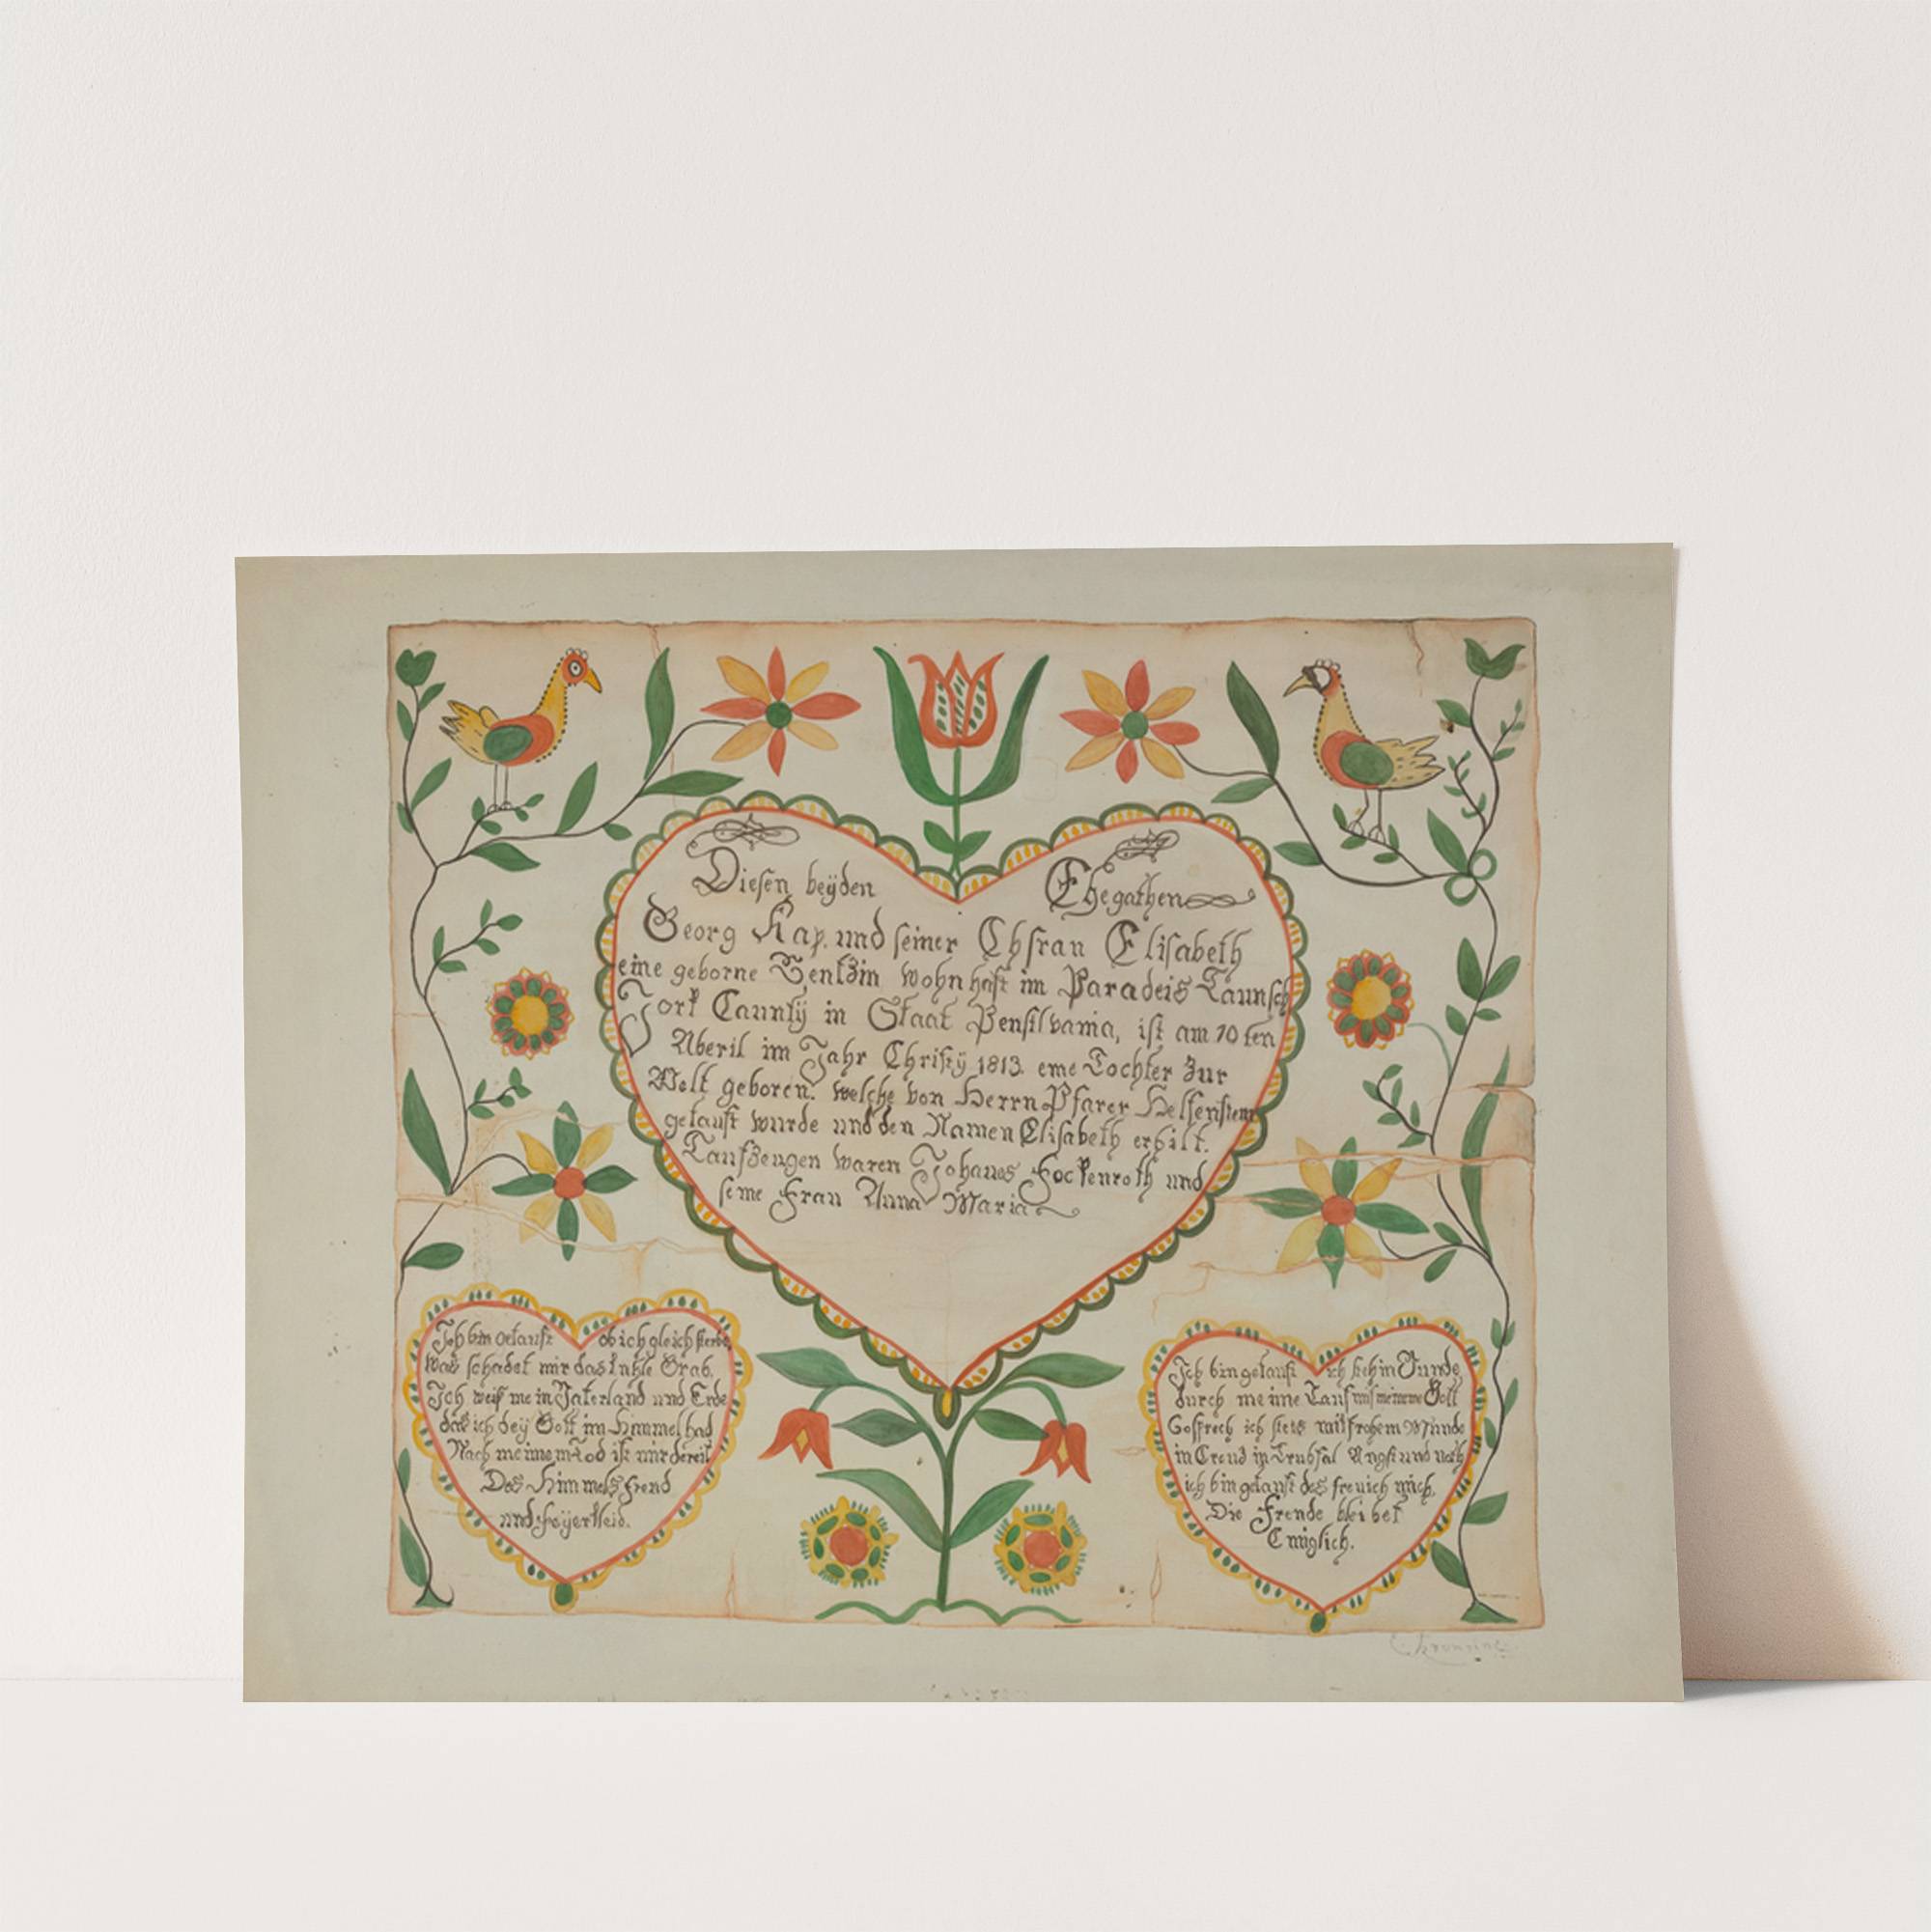 Diesen beÿden Ehegathen
Georg Kap. und seiner Ehfrau Elisabeth
eine geborne wohnhaft im Paradeis Taunsch
Jork Caunty in Staat Pensilvania, ist am 10ten
Aberil im Jahr Christÿ 1813. eine Tochter zur
Welt geboren. welche von Herrn Pfarer Helfenstein
getauft wurde und den Namen Elisabeth erhilt.
Taufzeugen waren Johanes Fockenroth und
seine Frau Anna Maria
Ich bin getauft ob ich gleich sterbe
was schadet mir das Grab.
Ich weiß mein Vaterland und Erde
das ich bey Gott im Himmel hab
Nach meinem Tod ist mir bereit
Des Himmels freud
und
Ich bin getauft ich steh im Bunde
durch meine Tauf mit meinem Gott
So sprech ich stets mit frohem Munde
in Creuz in Trubsal Angst und noth
ich bin getauft des freu ich mich.
Die Freude bleibet
Ewiglich.